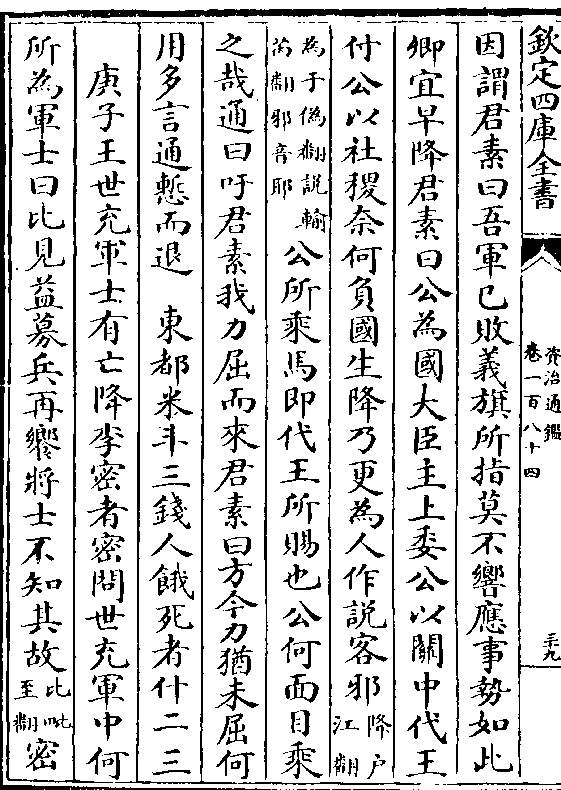 欽定四庫全書
資治通鑑
卷一百八十四
三九
因謂君素曰吾軍已敗義旗所指莫不響應事勢如此
卿宜早降君素曰公為國大臣主上委公以關中代王
付公以社稷奈何負國生降乃更為人作説客邪降户江翻
為于偽翻説輸芮翻邪音耶公所乘馬即代王所賜也公何面目乘
之哉通曰吁君素我力屈而來君素曰方今力猶未屈何
用多言通慙而退　東都米斗三錢人餓死者什二三
庚子王世充軍士有亡降李密者密問世充軍中何
所為軍士曰比見益募兵再饗將士不知其故比毗至翻密